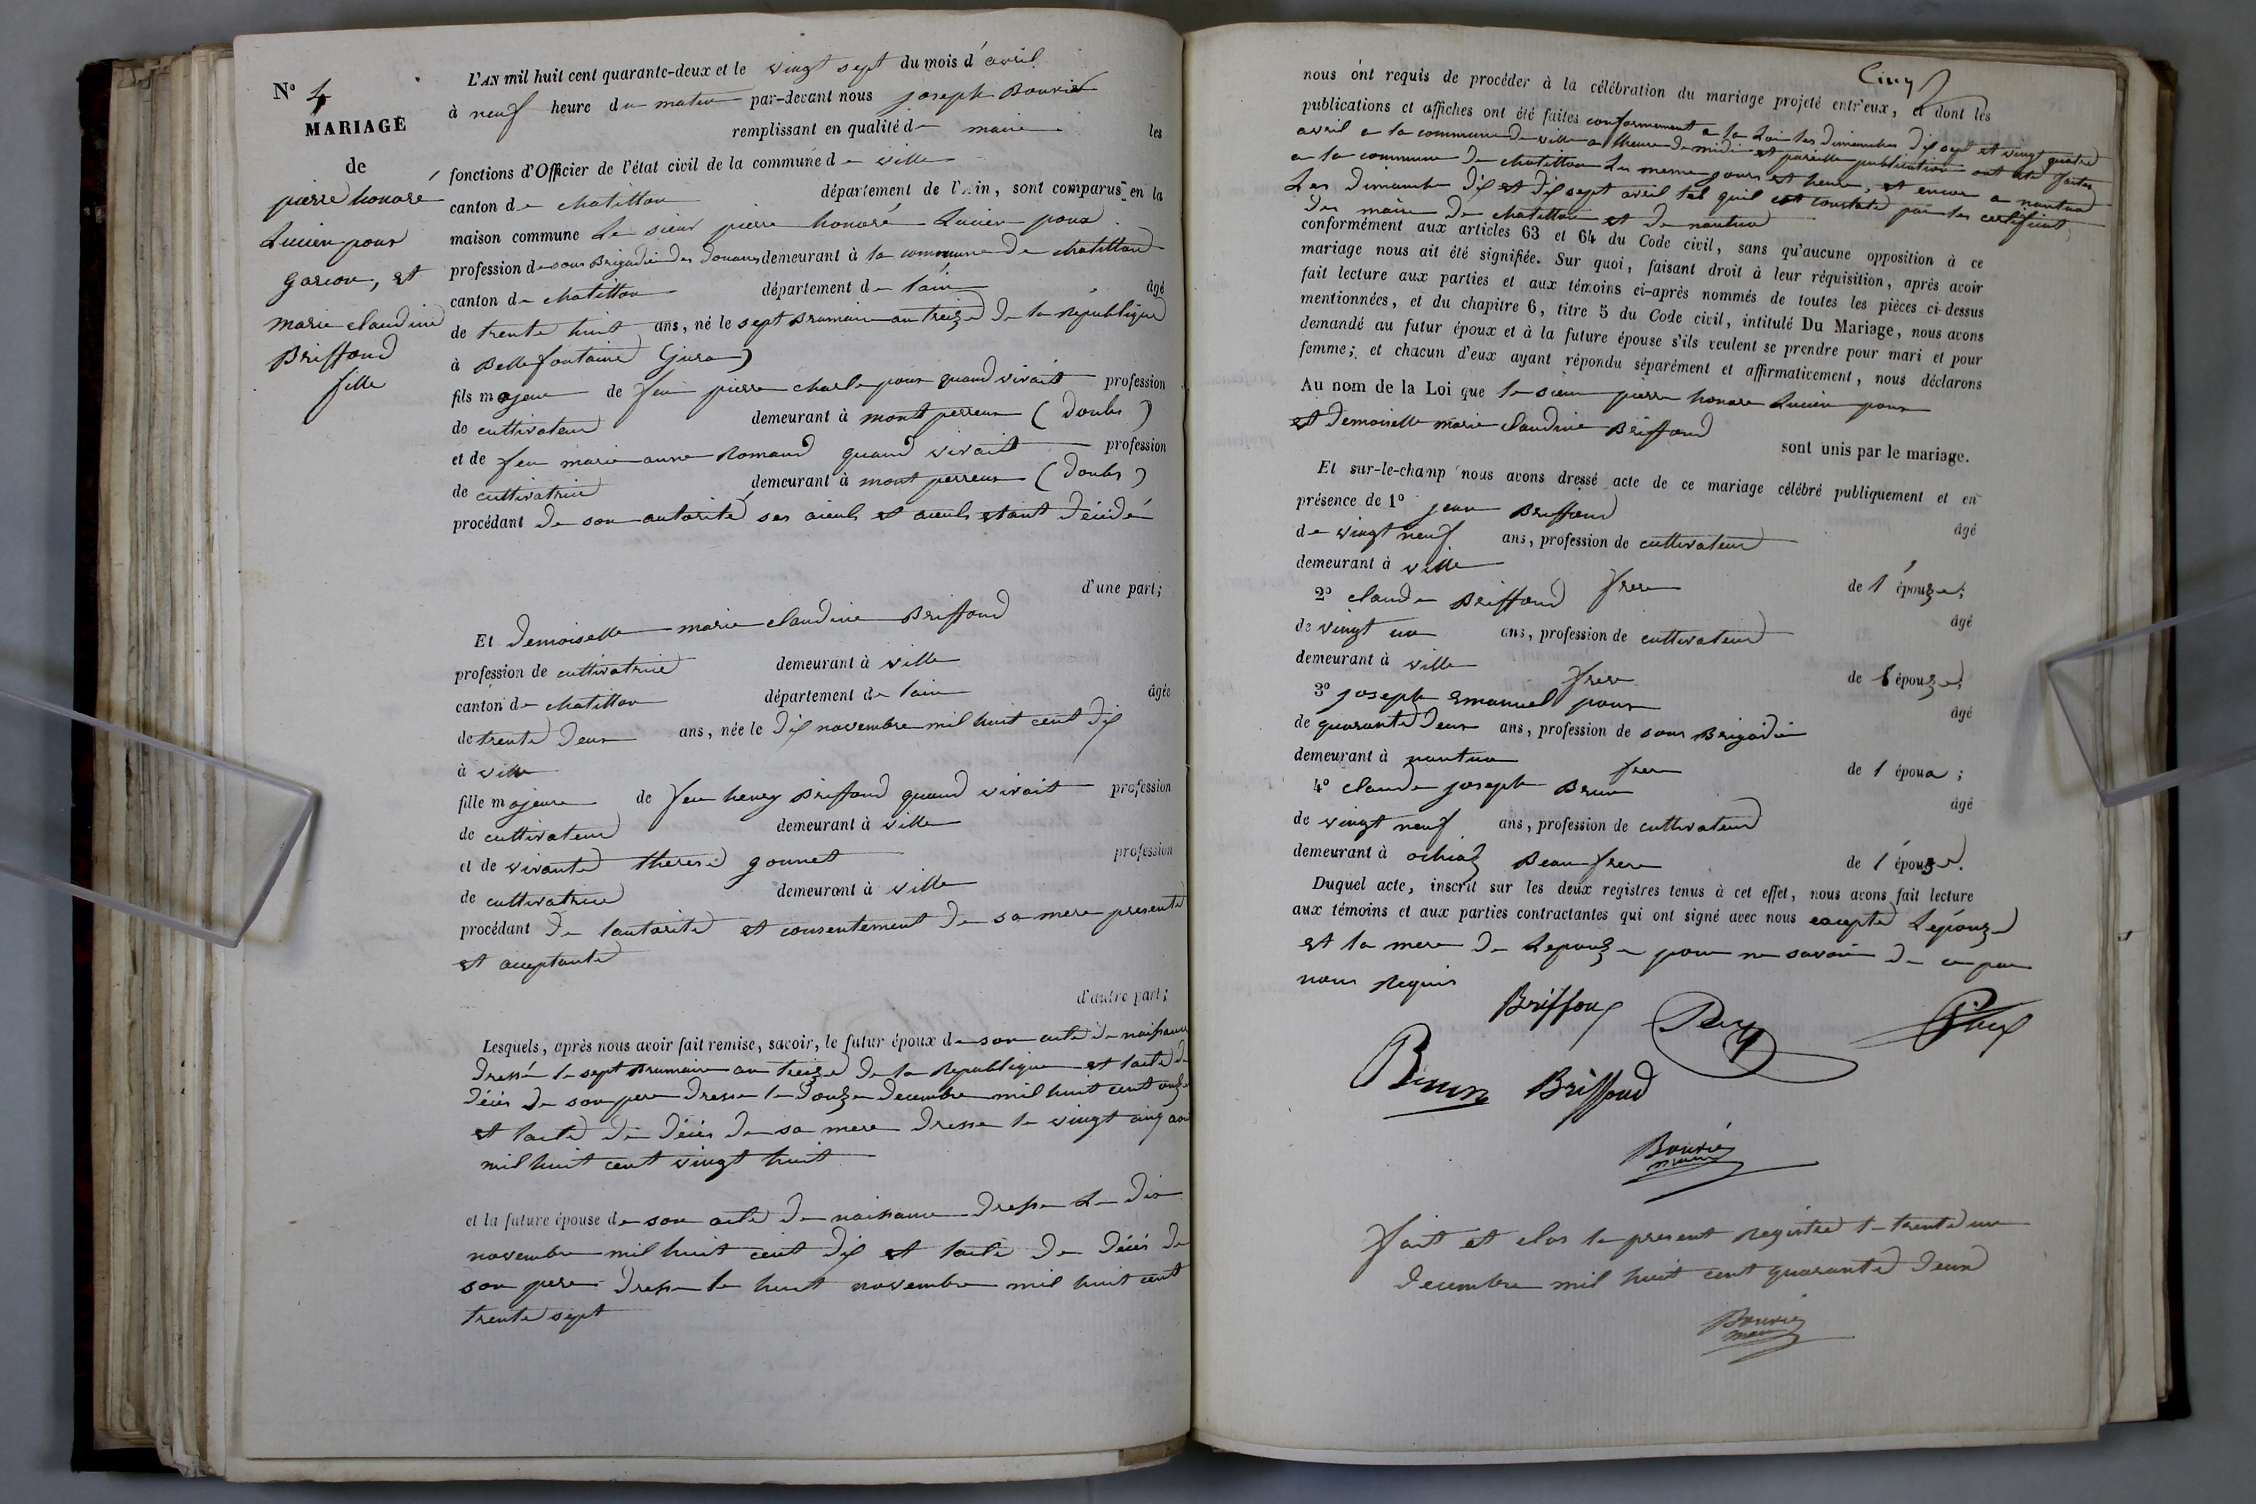 N° 4
MARIAGE
de
pierre honoré
Lucien poux
garcon, et
marie claudine
Briffoud
fille
L'AN mil huit cent quarante-deux et le vingt sept du mois d'avril
à neuf heure du matin par-devant nous joseph Bouvier
remplissant en qualité de maire les
fonctions d'Officier de l'état civil de la commune de ville
canton de chatillon département de l'Ain, sont comparus en la
maison commune Le sieur pierre honoré Lucien poux
profession de sous Brigadier des douanes demeurant à la commune de chatillon
canton de chatillon département de l'ain âgé
de trente huit ans, né le sept Brumaire an treize de la république
à Bellefontaine (jura)
fils majeur de feu pierre charle poux quand vivait profession
de cultivateur demeurant à mont perreux (Doubs)
et de feu marie anne Romand quand vivait profession
de cultivatrice demeurant à mont perreux (Doubs)
procédant de son autorité ses aieuls et aieuls etant décidé
d'une part;
Et demoiselle marie claudine Briffoud
profession de cultivatrice demeurant à ville
canton de chatillon département de lain âgée
de trente deux ans, née le dix novembre mil huit cent dix
à ville
fille majeure de feu henry Briffoud quand vivait profession
de cultivateur demeurant à ville
et de vivante therese gounet profession
de cultivatrice demeurant à ville
procédant de lautorité et consentement de sa mere presente
et acceptante
d'autre part;
Lesquels, après nous avoir fait remise, savoir, le futur époux de son acte de naissance
dressé le sept Brumaire an treize de la Republique et lacte de
décès de son pere dresse le douze decembre mil huit cent onze
et lacte de décès de sa mere dresse le vingt cinq
mil huit cent vingt huit
et la future épouse de son acte de naissance dresse Le dix
novembre mil huit cent dix et lacte de décès de
son pere dresse le huit novembre mil huit cent
trente sept
Cinq
nous ont requis de procéder à la célébration du mariage projeté entr'eux, et dont les
publications et affiches ont été faites conformement a la Loi les dimanches dix sept et vingt quatre
avril a la commune de ville a lheure de midi et pareille publication ont ete faites
a la commune de chatillon Les meme jours et heure, et encore a nantua
Les dimanche dix et dix sept avril tel quil est constaté par les certificat
des maire de chatillon et de nantua
conformément aux articles 63 et 64 du Code civil, sans qu'aucune opposition à ce
mariage nous ait été signifiée. Sur quoi, faisant droit à leur réquisition, après avoir
fait lecture aux parties et aux témoins ci-après nommés de toutes les pièces ci-dessus
mentionnées, et du chapitre 6, titre 5 du Code civil, intitulé Du Mariage, nous avons
demandé au futur époux et à la future épouse s'ils veulent se prendre pour mari et pour
femme; et chacun d'eux ayant répondu séparément et affirmativement, nous déclarons
Au nom de la Loi que le sieur pierre honore Lucien poux
et demoiselle marie claudine Briffoud
sont unis par le mariage.
Et sur-le-champ nous avons dressé acte de ce mariage célébré publiquement et en
présence de 1° jean Briffoud âgé
de vingt neuf ans, profession de cultivateur
demeurant à ville frere de l'épouze;
2° claude Briffoud âgé
de vingt un ans, profession de cultivateur
demeurant à ville frere de l'épouze;
3° joseph Emanuel poux âgé
de quarante deux ans, profession de sous Brigadier
demeurant à nantua frere de l époux;
4° claude joseph Brun âgé
de vingt neuf ans, profession de cultivateur
demeurant à ochiaz Beau frere de l'épouze.
Duquel acte, inscrit sur les deux registres tenus à cet effet, nous avons fait lecture
aux témoins et aux parties contractantes qui ont signé avec nous excepté Lépouze
et la mere de Lepouze pour ne savoir de ce par
nous Requis
Briffoud Poux Poux
Brun Briffoud
Bouvier
maire
Fait et clos le present Registre le trente un
decembre mil huit cent quarante deux
Bouvier
maire